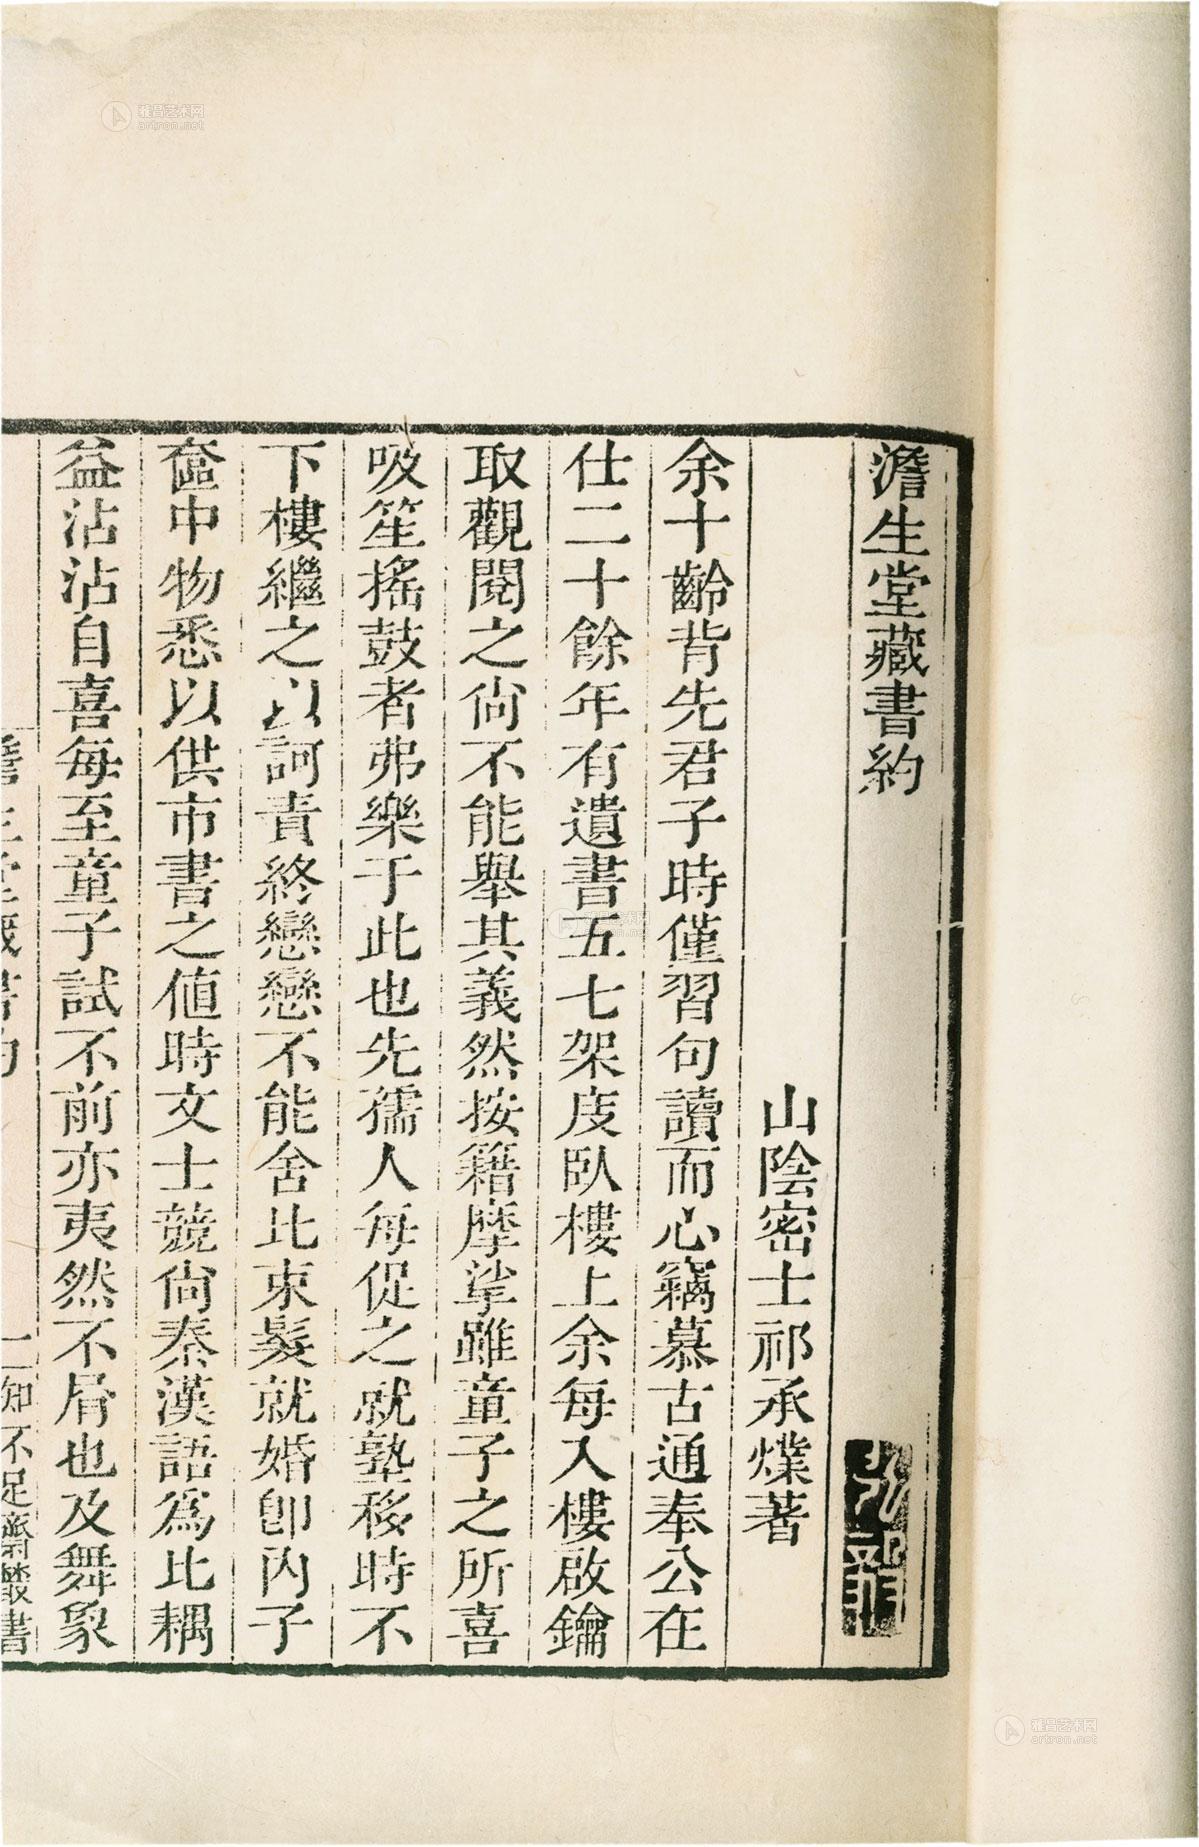 澹生堂藏書約
山陰密士祁承㸁著
余十齡背先君子時僅習句讀而心竊慕古通奉公在
仕二十餘年有遺書五七架庋臥樓上余每入樓啟鑰
取觀閱之尙不能舉其義然按籍摩挲雖童子之所喜
吸笙搖鼓者弗樂于此也先孺人每促之就塾移時不
下樓繼之以訶責終戀戀不能舍比束髮就婚卽內子
奩中物悉以供市書之値時文士競尙秦漢語爲比耦
益沾沾自喜每至童子試不前亦夷然不屑也及舞象
澹生堂藏書約
一
知不足齋叢書
雅昌艺术网
artron.net
雅昌艺术网
artron.net